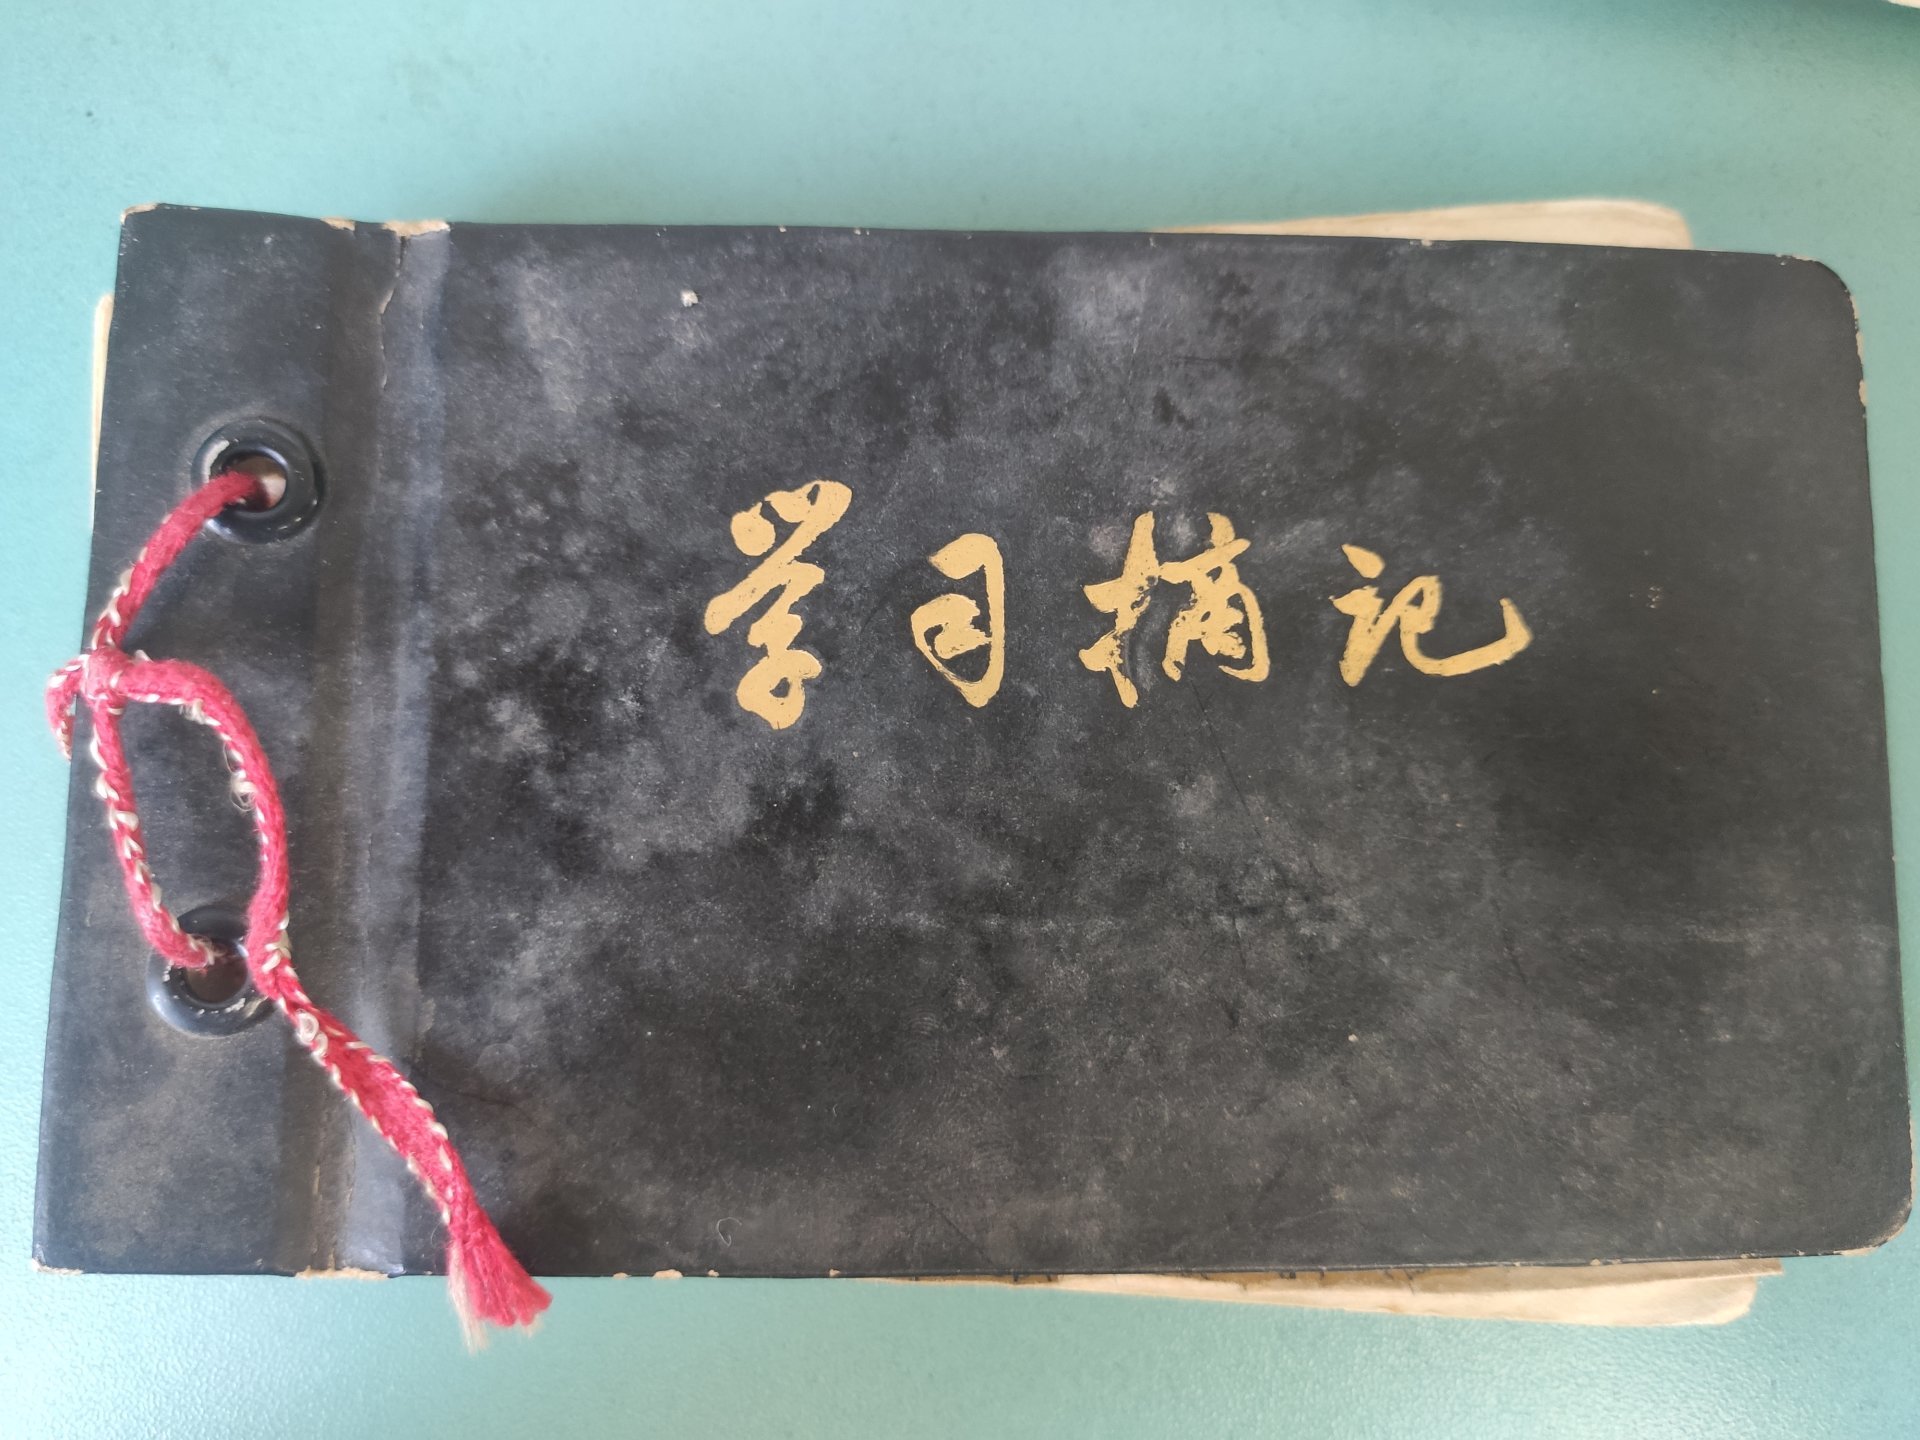 学习摘记